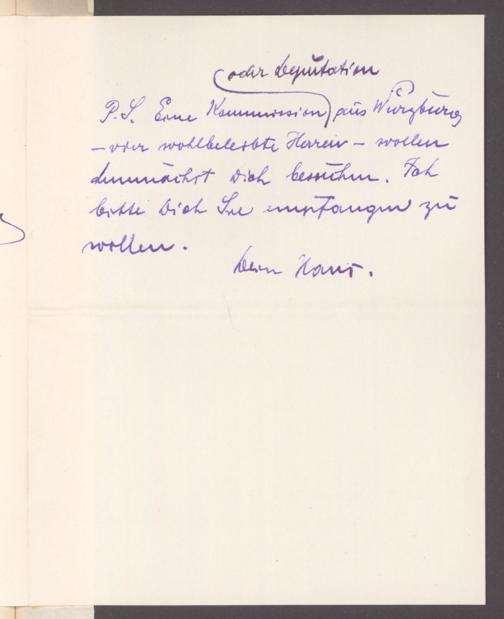 (oder Deputation
P.S. Eine Kommission) aus Würzburg
– vier wohlbeleibte Herren – wollen
demnächst Dich besuchen. Ich
bitte Dich Sie empfangen zu
wollen.
Dein Hans.